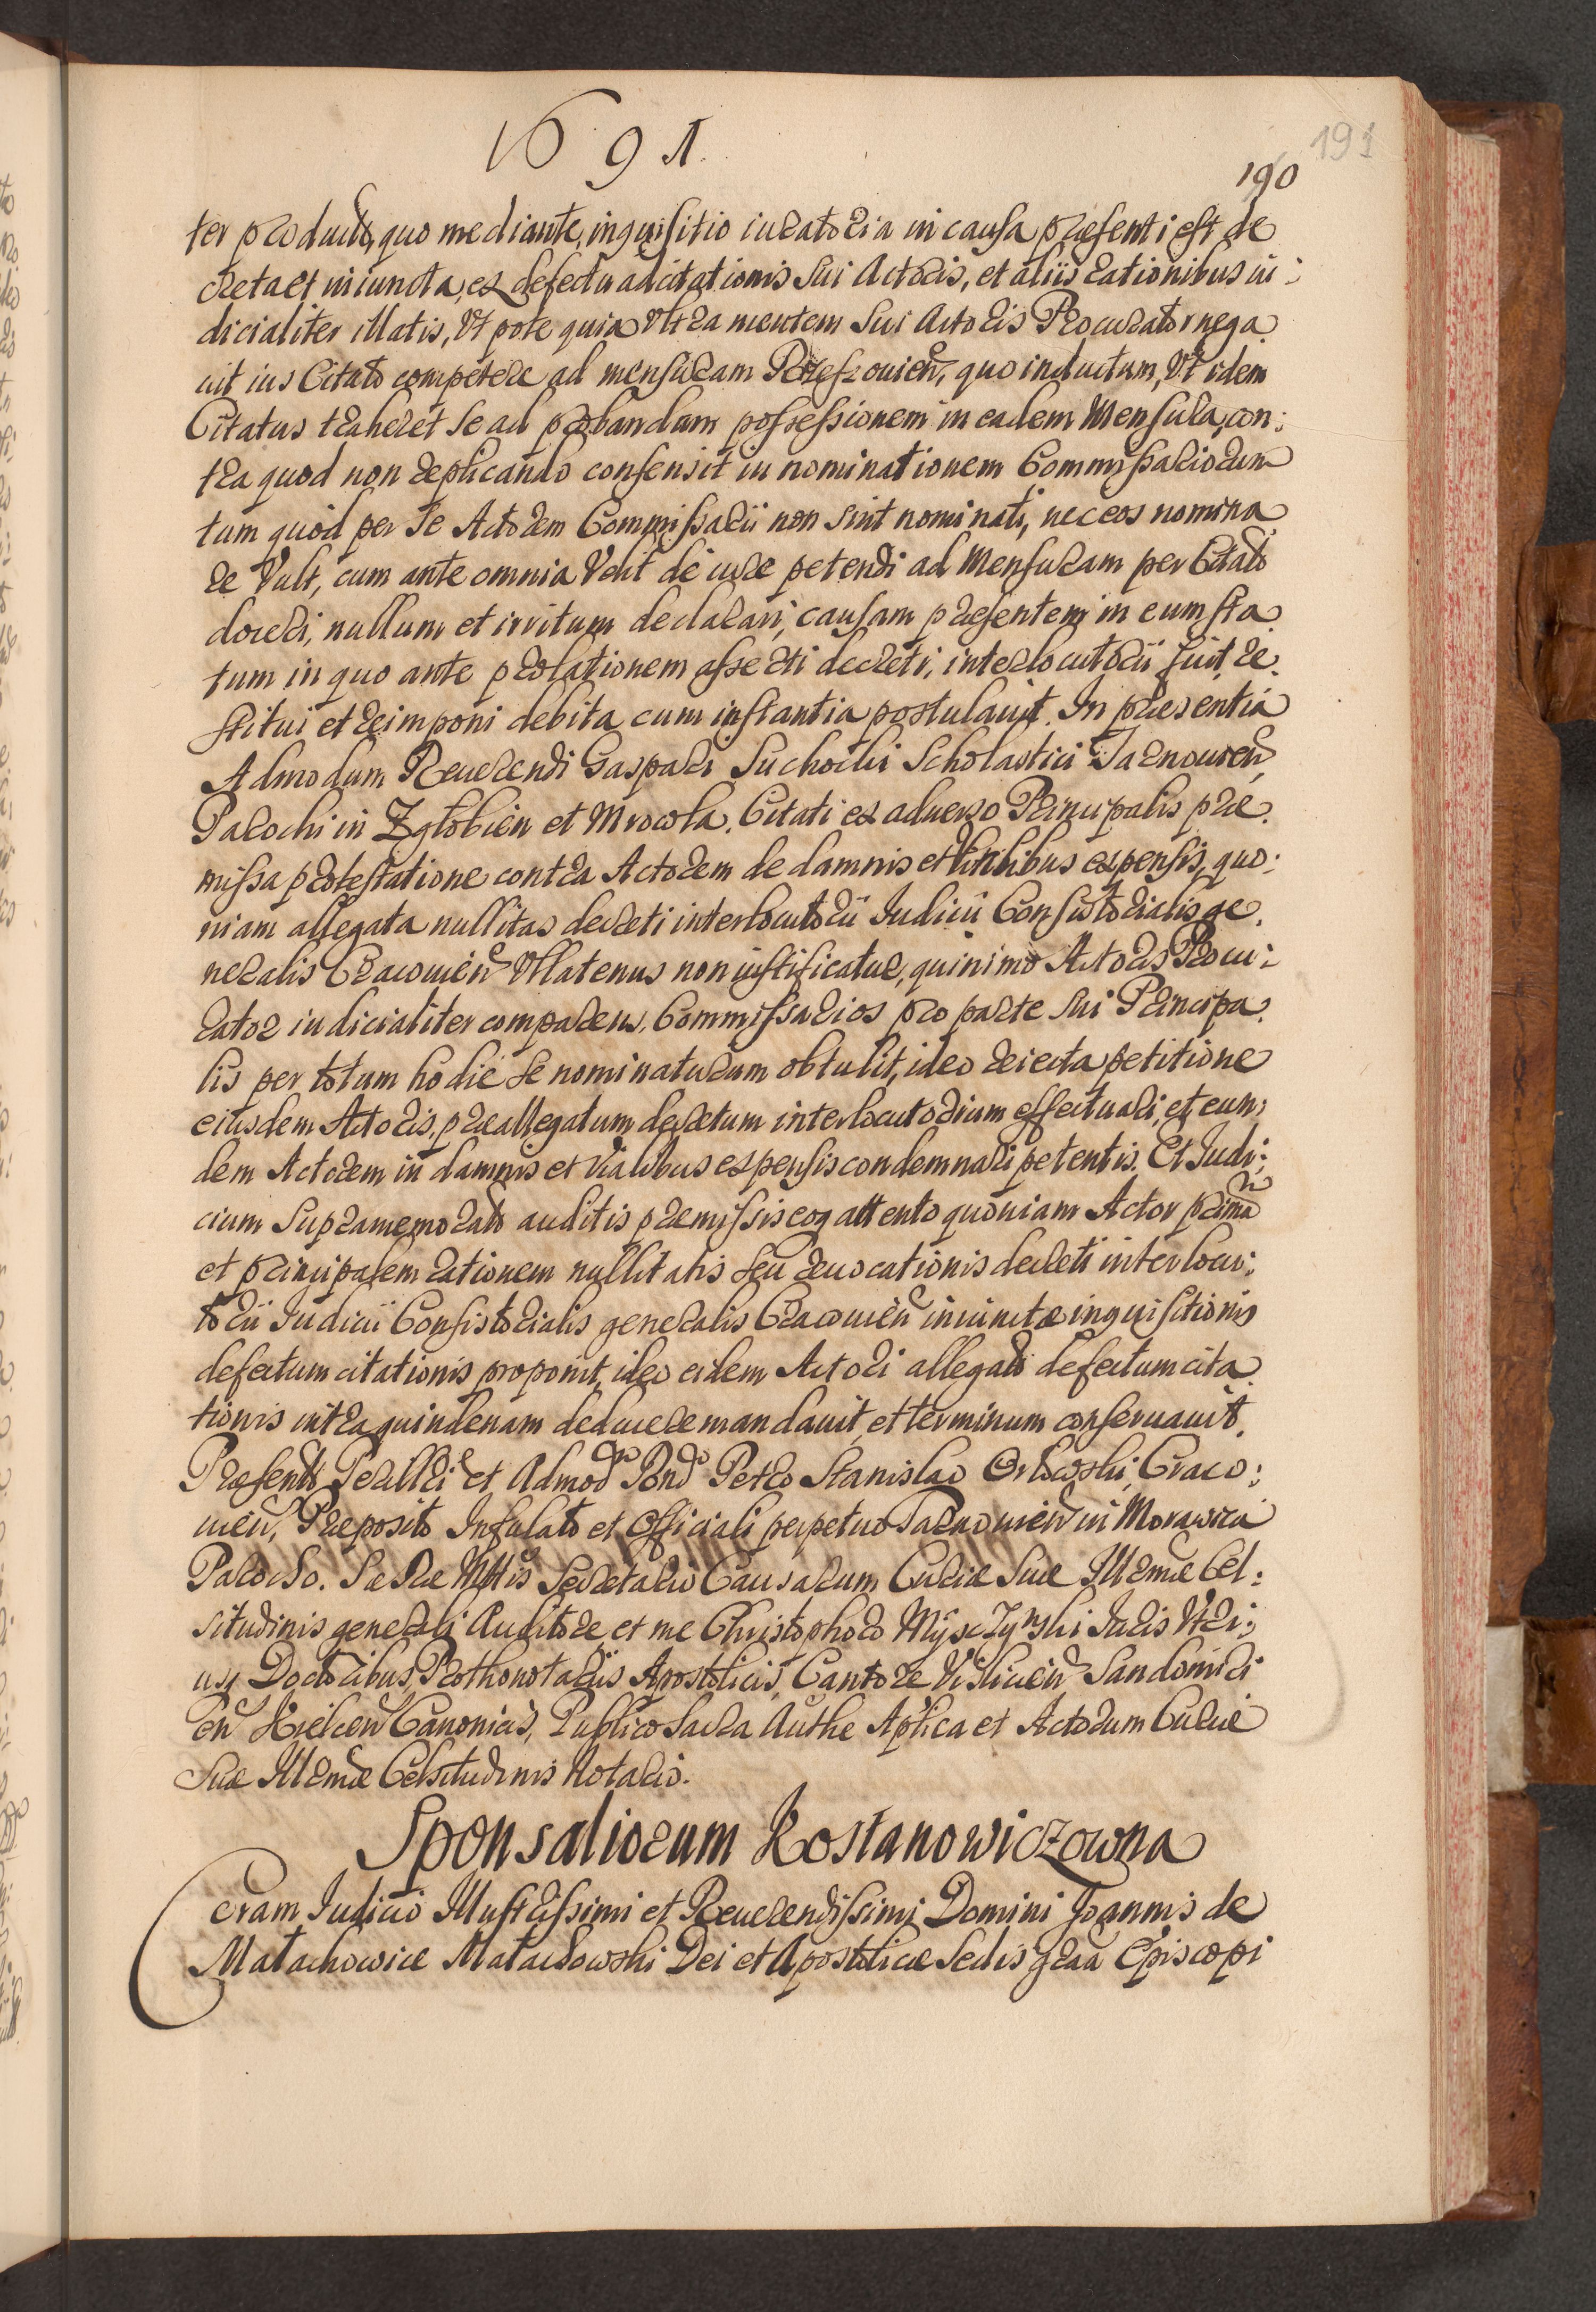 1691.
191
190
ter producto, quo mediante, inquisitio iuratoria in causa præsenti est de
creta et iniuncta, ex defectu adcitationis sui Actoris, et aliis rationibus iu:
dicialiter illatis, Ut pote quia Ultra mentem sui Actoris Procurator nega
uit ius Citato competere ad mensuram Rzeszouien, quo inductum, Ut idem
Citatus traheret se ad probandam possessionem in eadem Mensura, con:
tra quod non replicando consensit in nominationem Commissariorum
tum quod per se Actorem Commissarii non sint nominati, nec eos nomina
re Vult, cum ante omnia Velit de iure petendi ad Mensuram per Citato
doceri, nullum et irritum declarari, causam præsentem in eum sta
tum in quo ante prolationem asserti decreti, interlocutorii fuit, re
stitui et reimponi debita cum instantia postulauit. In præsentia
Admodum Reuerendi Gaspari Suchocki Scholastici Tarnouien,
Parochi in Zgłobien et Mrowla. Citati ex aduerso Principalis præ
missa protestatione contra Actorem de damnis et litis expensis, quo:
niam allegata nullitas decreti interlocutorii Iudicii Consistorialis ge
neralis Cracouien Ullatenus non iustificatur, quinimo Actoris Procu:
rator iudicialiter comparens, Commissarios pro parte sui Principa
lis per totum hodie se nominaturum obtulit, ideo reiecta petitione
eiusdem Actoris, præallegatum decretum interlocutorium effectuari, et eun:
dem Actorem in damnis et Vialibus expensis condemnari petentis. Et Iudi:
cium Supramemorato auditis præmissis eoq attento quoniam Actor primā
et principalem rationem nullitatis seu reuocationis decreti interlocu:
torii Iudicii Consistorialis generalis Cracouien iniunctæ inquisitionis
defectum citationis proponit, ideo eidem Actori allegati defectum cita
tionis intra quindenam deducere mandauit, et terminum conseruauit.
Præsentt Perillri et Admod Rndo Petro Stanislao Orłowski, Craco:
uien, Præposito Infulato et Officiali perpetuo Tarnouien in Morawica
Parocho. Sæ Ræ Mttis Secretario Causarum Curiæ Suæ Illrmæ Cel:
situdinis generali Auditore et me Christophoro Mysczynski Iuris Utri:
usq Doctoribus, Prothonotariis Apostolicis, Cantore Visliciен Sandomiri
en Kielcen Canonicis, Publico Sacra Authe Aptica et Actorum Curiæ
Suæ Illrmæ Celsitudinis Notario.
Sponsaliorum Rostanowiczowna
Coram Iudicio Illustrissimi et Reuerendissimi Domini Joannis de
Małachowice Małachowski Dei et Apostolicæ Sedis graā Episcopi